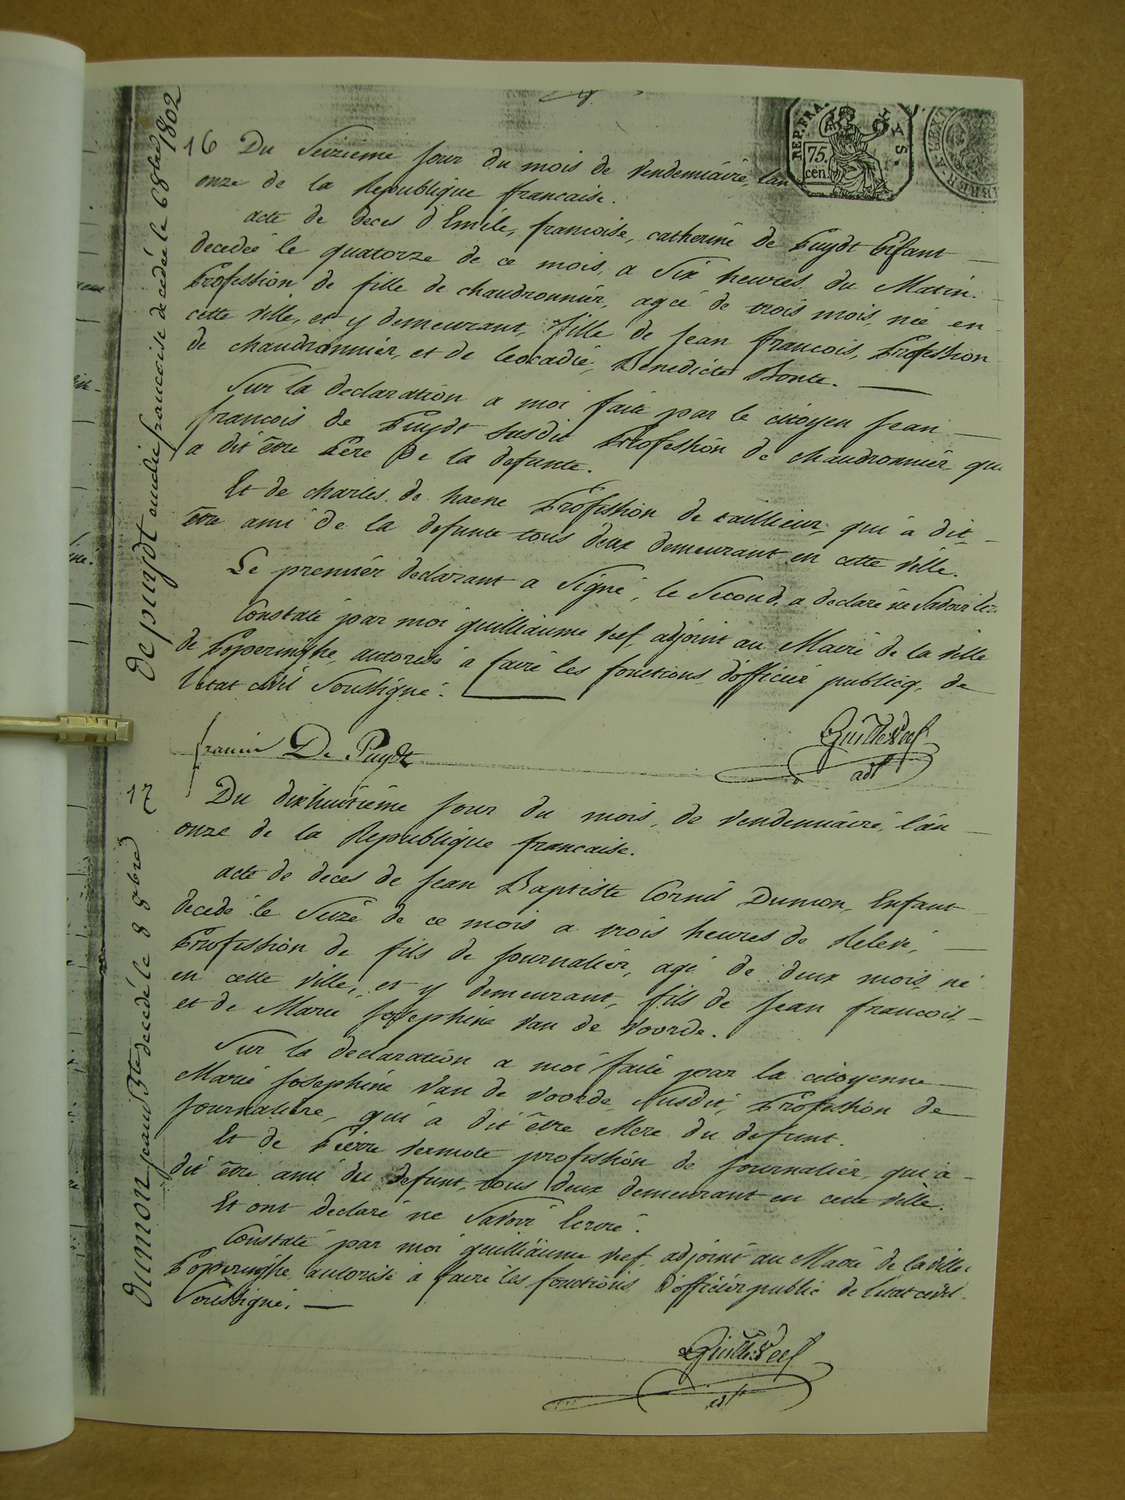 REP. FRA.
75.
cen.
A S.
1802
de puydt amelie francoise decedée le 6 8bre
16 Du Seizieme jour du mois de Vendemiaire, l'an
onze de la Republique francaise.
acte de deces d'Emile, francoise, catherine de Puydt Enfant
decedée le quatorze de ce mois, a Six heures du Matin.
Profession de fille de chaudronnier, agée de trois mois, née en
cette Ville, et y demeurant, fille de Jean francois, Profession
de chaudronnier, et de Leocadie, Benedicte Bonte.
Sur la declaration a moi faite par le citoyen Jean
francois de Puydt susdit Profession de chaudronnier qui
a dit être Pere De la defunte.
Et de charles de haene Profession de taillieur, qui a dit
être ami de la defunte tous deux demeurant en cette Ville.
Le premier declarant a Signé, le Second, a declaré ne Savoir
Constaté par moi guilliaume Vef, adjoint au Maire de la Ville
de Poperinghe, autorisé a faire les fonctions d'officier publicq, de
l'etat civil Soussigné.
De Puydt
Guille Veef
adt
dumon jean Bte decédé le 8 8bre
17 Du dixhuitieme jour du mois, de Vendemiaire, l'an
onze de la Republique francaise.
acte de deces de Jean Baptiste Cornil Dumon, Enfant
decedé le Seize de ce mois a trois heures de Relevé,
Profession de fils de journalier, agé de deux mois, né
en cette Ville, et y demeurant, fils de Jean francois,
et de Marie Josephine Van de Voorde.
Sur la declaration a moi faite par la citoyenne
Marie Josephine Van de Voorde, Susdit, Profession de
journaliere, qui a dit être Mere du defunt.
Et de Pierre Vermote profession de journalier, qui a
dit être ami du defunt, tous deux demeurant en cette Ville.
Et ont declaré ne Savoir Ecrire.
Constaté par moi guilliaume Vef, adjoint au Maire de la Ville
Poperinghe, autorisé a faire les fonctions d'officier public de l'etat civil
Soussigné.
Guille Veef
adt